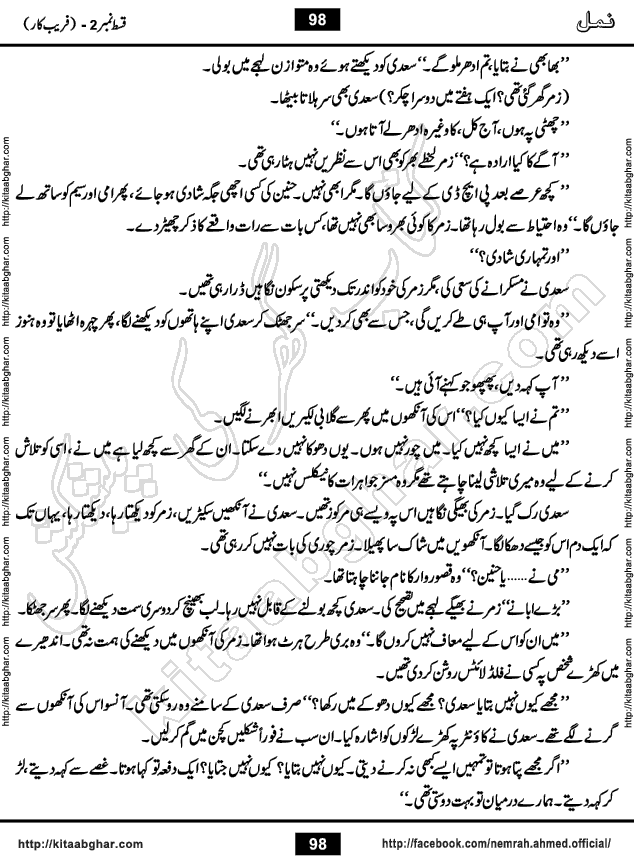 قسط نمبر 2 - (فریب کار)
98
نمل
’’بھابھی نے بتایا، تم ادھر ملو گے۔‘‘ سعدی کو دیکھتے ہوئے وہ متوازن لہجے میں بولی۔
(زمر گھر گئی تھی؟ ایک ہفتے میں دوسرا چکر؟) سعدی بھی سر ہلاتا بیٹھا۔
’’چھٹی پہ ہوں، آج کل، کام وغیرہ ادھر لے آتا ہوں۔‘‘
’’آگے کا کیا ارادہ ہے؟‘‘ زمر لحظے بھر کو بھی اس سے نظریں نہیں ہٹا رہی تھی۔
’’کچھ عرصے بعد پی ایچ ڈی کے لیے جاؤں گا۔ مگر ابھی نہیں۔ حنین کی کسی اچھی جگہ شادی ہو جائے، پھر امی اور سیم کو ساتھ لے
جاؤں گا۔‘‘ وہ احتیاط سے بول رہا تھا۔ زمر کا کوئی بھروسا بھی نہیں تھا، کس بات سے رات والے واقعے کا ذکر چھیڑ دے۔
’’اور تمہاری شادی؟‘‘
سعدی نے مسکرانے کی سعی کی، مگر زمر کی خود کو اندر تک دیکھتی پرسکون نگاہیں ڈرا رہی تھیں۔
’’وہ تو امی اور آپ ہی طے کریں گی، جس سے بھی کر دیں۔‘‘ سر جھٹک کر سعدی اپنے ہاتھوں کو دیکھنے لگا، پھر چہرہ اٹھایا تو وہ ہنوز
اسے دیکھ رہی تھی۔
’’آپ کہہ دیں، پھپھو جو کہنے آئی ہیں۔‘‘
’’تم نے ایسا کیوں کیا؟‘‘ اس کی آنکھوں میں پھر سے گلابی لکیریں ابھرنے لگیں۔
’’میں نے ایسا کچھ نہیں کیا۔ میں چور نہیں ہوں۔ یوں دھوکا نہیں دے سکتا۔ ان کے گھر سے کچھ لیا ہے میں نے، اسی کو تلاش
کرنے کے لیے وہ میری تلاشی لینا چاہتے تھے مگر وہ مسز جواہرات کا نیکلس نہیں۔‘‘
سعدی رک گیا۔ زمر کی بھیگی نگاہیں اس پہ ویسے ہی مرکوز تھیں۔ سعدی نے آنکھیں سکیڑیں، زمر کو دیکھتا رہا، دیکھتا رہا، یہاں تک
کہ ایک دم اس کو جیسے دھکا لگا۔ آنکھوں میں شاک سا پھیلا۔ زمر چوری کی بات نہیں کر رہی تھی۔
’’می نے...... یا حنین؟‘‘ وہ قصوروار کا نام جاننا چاہتا تھا۔
’’بڑے ابا نے‘‘ زمر نے بھیگے لہجے میں تصحیح کی۔ سعدی کچھ بولنے کے قابل نہیں رہا۔ لب بھینچ کر دوسری سمت دیکھنے لگا۔ پھر سر جھٹکا۔
’’میں ان کو اس کے لیے معاف نہیں کروں گا۔‘‘ وہ بری طرح ہرٹ ہوا تھا۔ زمر کی آنکھوں میں دیکھنے کی ہمت نہ تھی۔ اندھیرے
میں کھڑے شخص پہ کسی نے فلڈ لائٹس روشن کر دی تھیں۔
’’مجھے کیوں نہیں بتایا سعدی؟ مجھے کیوں دھوکے میں رکھا؟‘‘ صرف سعدی کے سامنے وہ رو سکتی تھی۔ آنسو اس کی آنکھوں سے
گرنے لگے تھے۔ سعدی نے کاؤنٹر پہ کھڑے لڑکوں کو اشارہ کیا۔ ان سب نے فوراً شکلیں کچن میں گم کر لیں۔
’’اگر مجھے پتا ہوتا تو تمہیں ایسے کبھی نہ کرنے دیتی۔ کیوں نہیں بتایا؟ کیوں نہیں جتایا؟ ایک دفعہ تو کہا ہوتا۔ غصے سے کہہ دیتے، لڑ
کر کہہ دیتے۔ ہمارے درمیان تو بہت دوستی تھی۔‘‘
http://kitaabghar.com
98
http://facebook.com/nemrah.ahmed.official/
http://kitaabghar.com
http://kitaabghar.com
http://kitaabghar.com
http://kitaabghar.com
http://kitaabghar.com
http://kitaabghar.com
http://kitaabghar.com
http://kitaabghar.com
http://kitaabghar.com
http://kitaabghar.com
http://kitaabghar.com
http://kitaabghar.com
کتاب گھر کی پیشکش
kitaabghar.com